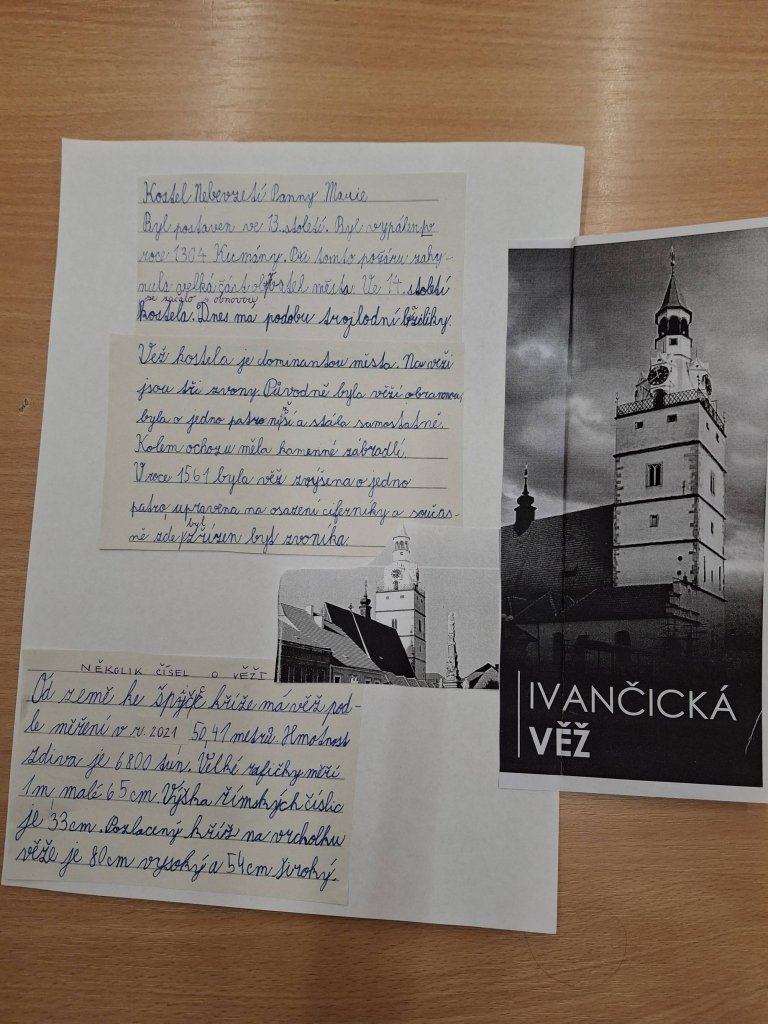 Kostel Nebevzetí Panny Marie
Byl postaven ve 13. století. Byl vypálen v
roce 1304 Kumány. Při tomto požáru zahy-
nula velká část obyvatel města. Ve 14. století
se začalo s obnovou
kostela. Dnes má podobu trojlodní baziliky.
Věž kostela je dominantou města. Na věži
jsou tři zvony. Původně byla věží obrannou,
byla o jedno patro nižší a stála samostatně.
Kolem ochozu měla kamenné zábradlí.
V roce 1561 byla věž zvýšena o jedno
patro upravena na osazení ciferníky a součas-
ně zde byl zřízen byt zvoníka.
NĚKOLIK ČÍSEL O VĚŽI
Od země ke špičce kříže má věž pod-
le měření v r. 2021 50,41 metrů. Hmotnost
zdiva je 6800 tun. Velké rafičky měří
1m malé 65cm. Výška římských číslic
je 33cm. Pozlacený kříž na vrcholku
věže je 80cm vysoký a 54cm široký.
IVANČICKÁ
VĚŽ